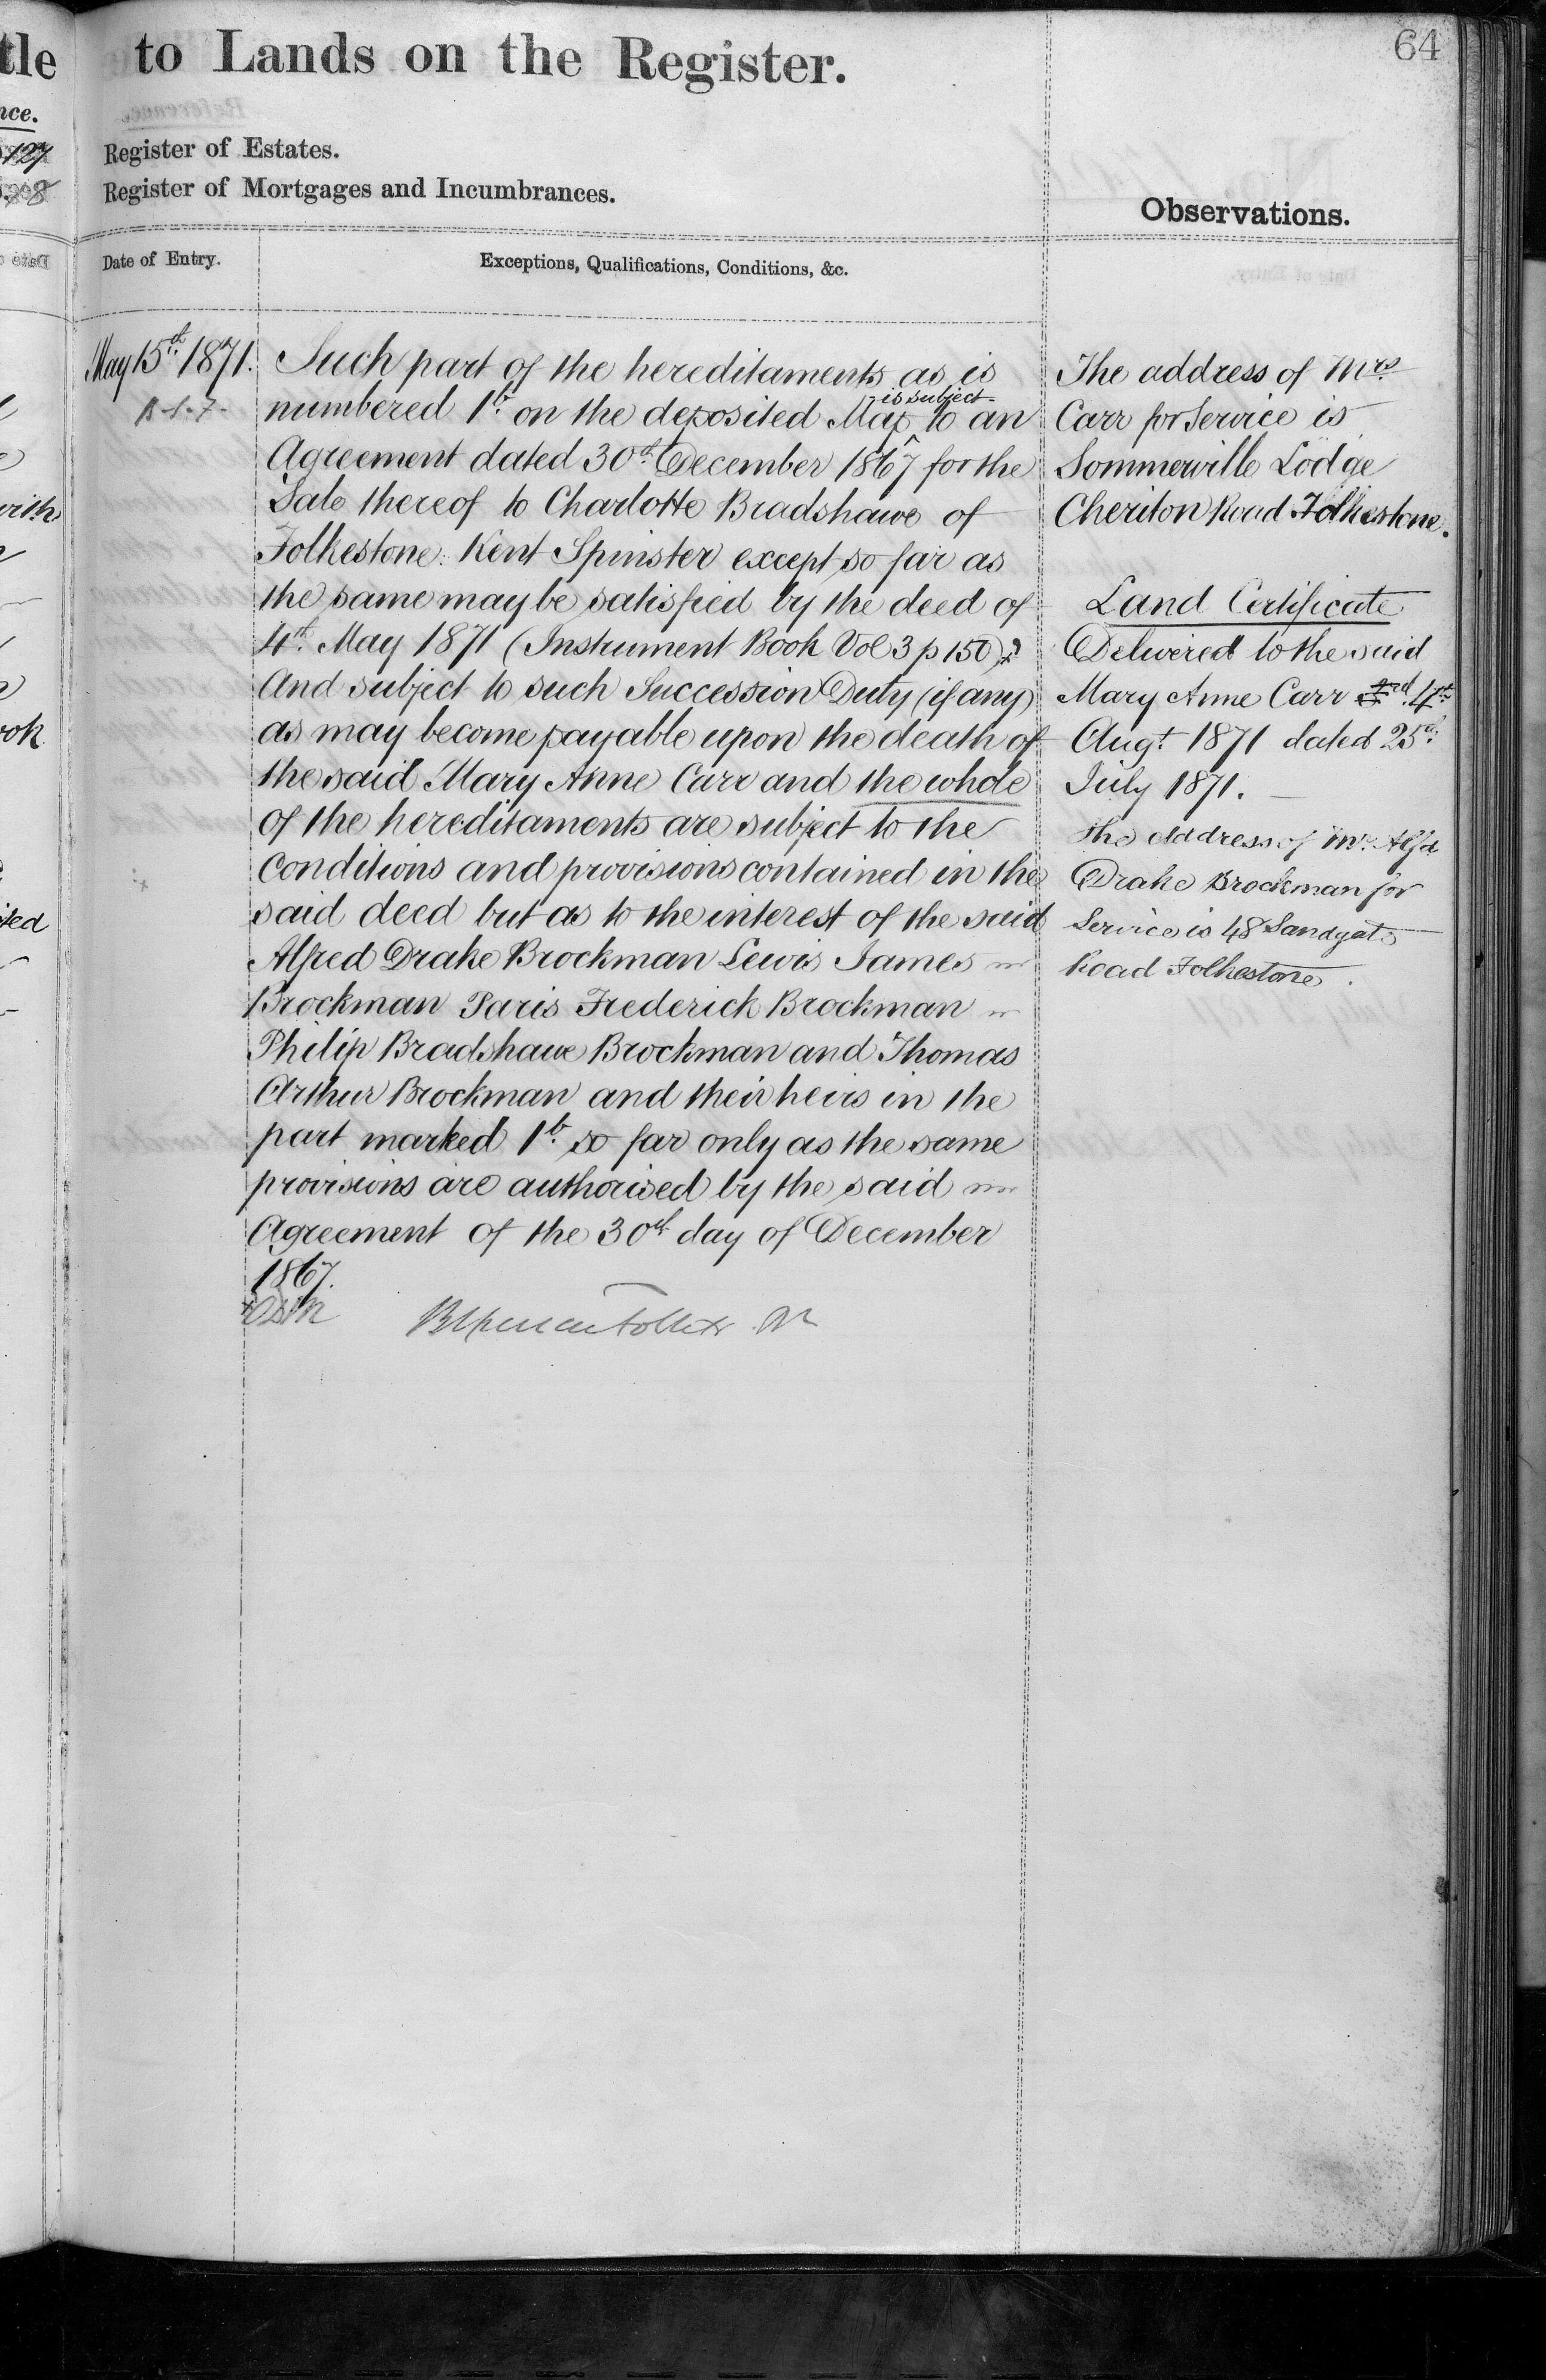 tle
to Lands on the Register.
64
nce.
127
Register of Estates.
Register of Mortgages and Incumbrances.
Observations.
Date of Entry.
Exceptions, Qualifications, Conditions, &c.
May 15th 1871.
Such part of the hereditaments as is
numbered 1b on the deposited Map ^is subject to an
Agreement dated 30th December 1867 for the
Sale thereof to Charlotte Bradshawe of
Folkestone Kent Spinster except so far as
the same may be satisfied by the deed of
4th May 1871 (Instrument Book Vol 3 p 150)
And subject to such Succession Duty (if any)
as may become payable upon the death of
the said Mary Anne Carr and the whole
of the hereditaments are subject to the
Conditions and provisions contained in the
said deed but as to the interest of the said
Alfred Drake Brockman Lewis James
Brockman Paris Frederick Brockman
Philip Bradshawe Brockman and Thomas
Arthur Brockman and their heirs in the
part marked 1b so far only as the same
provisions are authorised by the said
Agreement of the 30th day of December
1867.
The address of Mrs
Carr for Service is
Sommerville Lodge
Cheriton Road Folkestone.
Land Certificate
Delivered to the said
Mary Anne Carr 4th
Augt 1871 dated 25th
July 1871.
The address of Mr Alfd
Drake Brockman for
Service is 48 Sandgate
Road Folkestone.